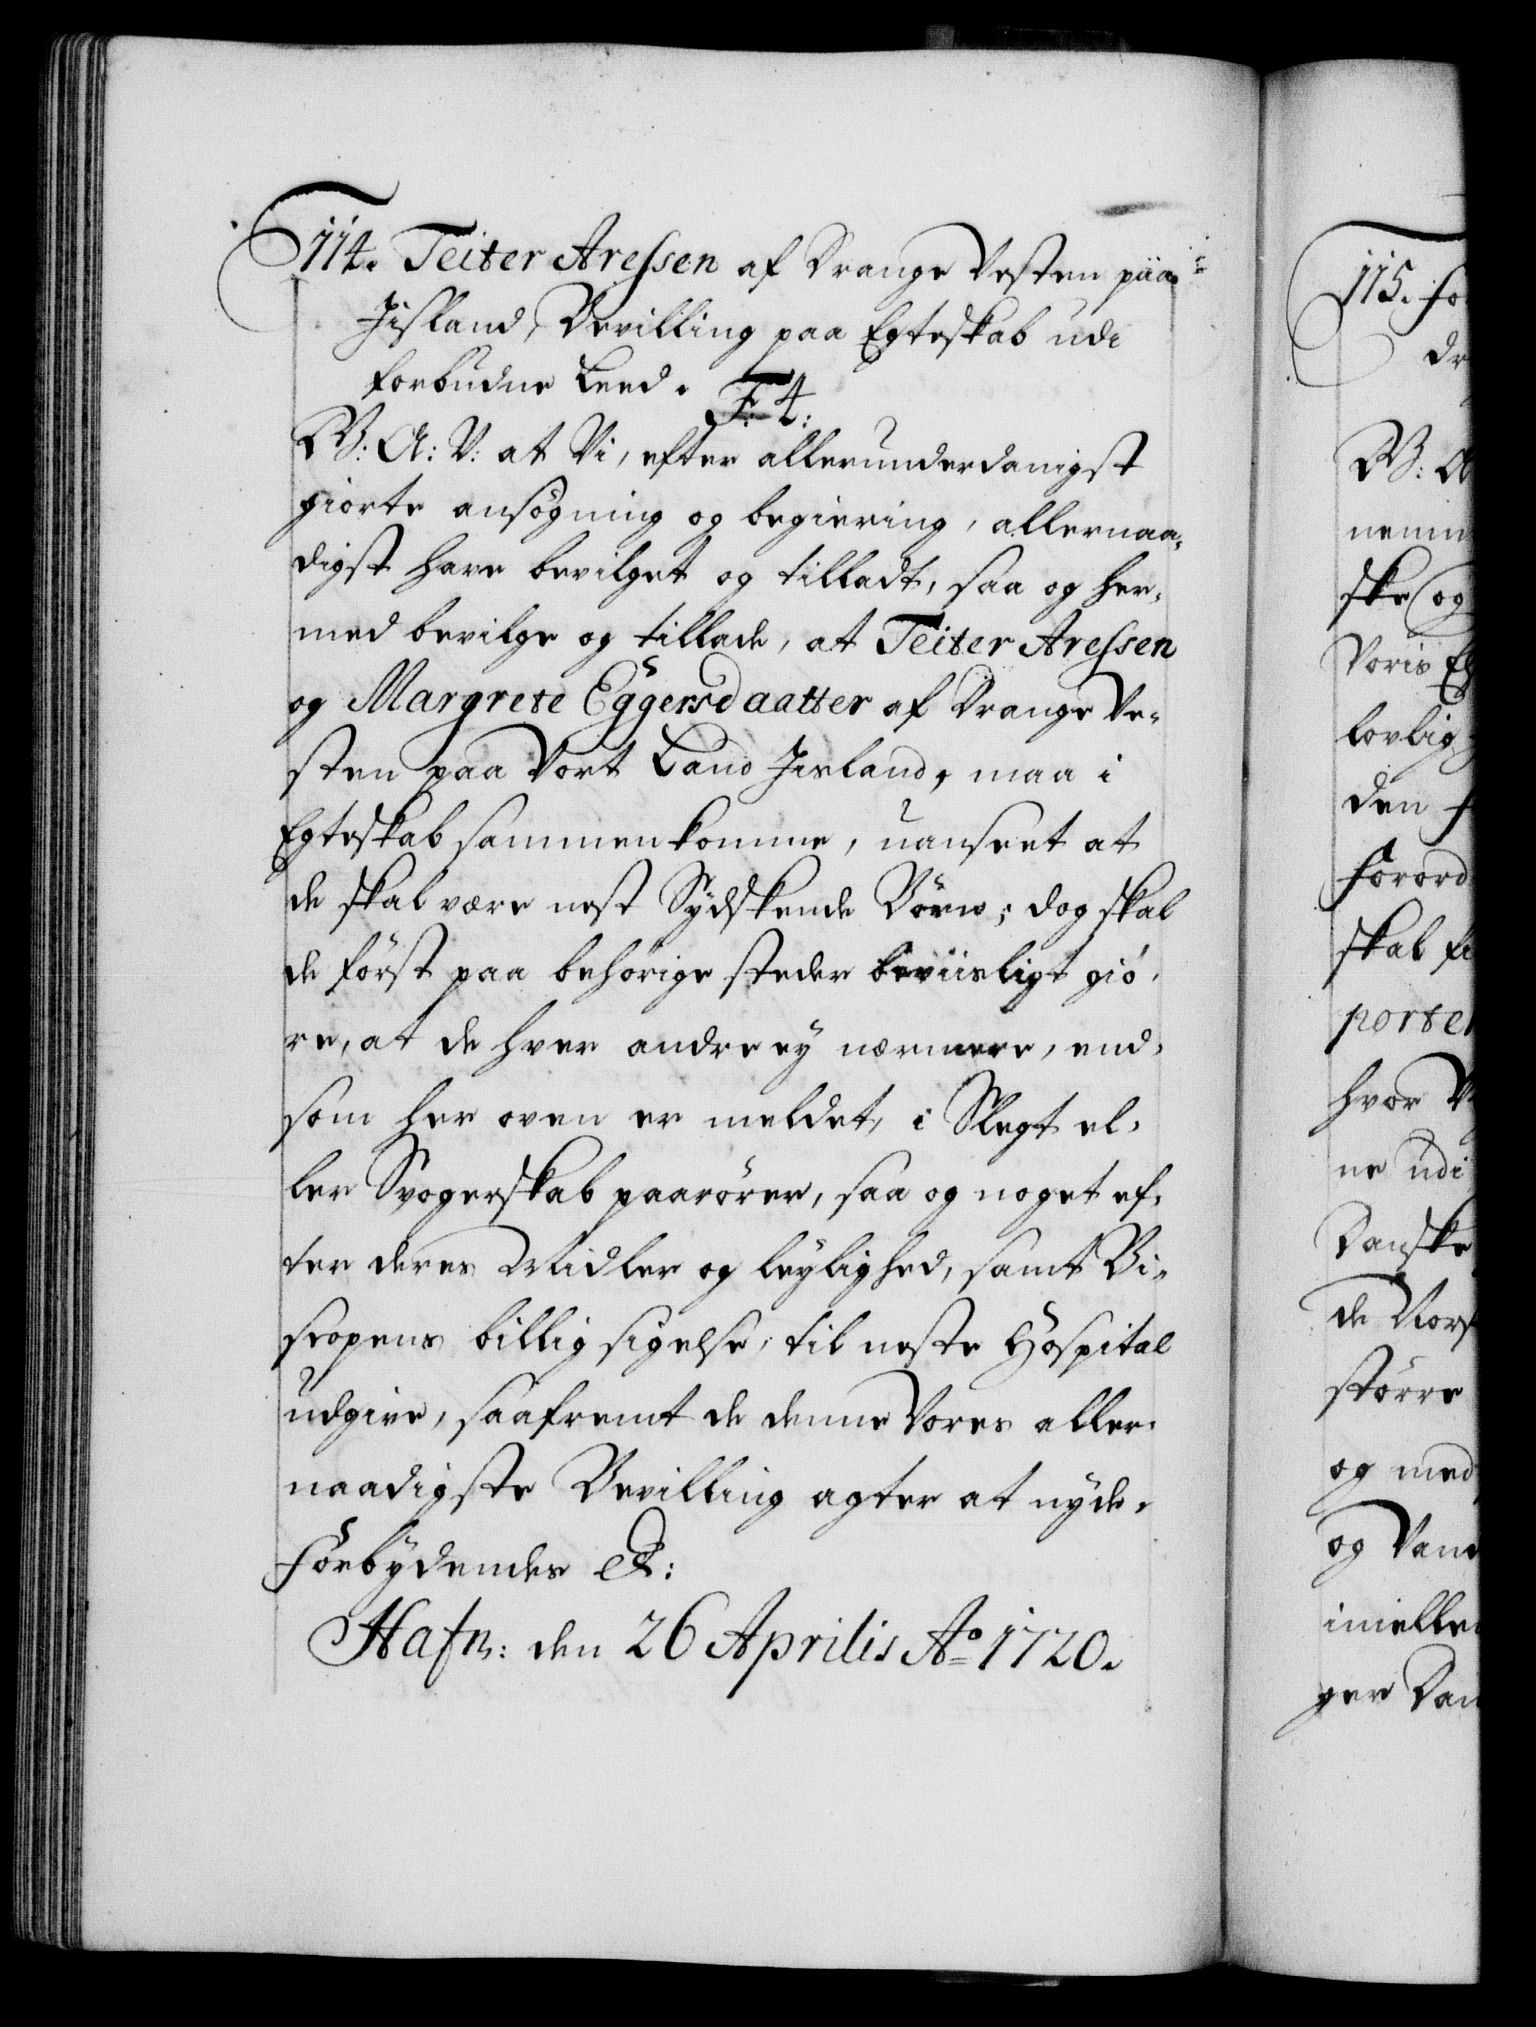 114. Teiter Aressen af Drange Vesten paa
Jisland, Bevilling paa Egteskab udi
forbudne Leed. F: 4:
W: A: V: at Vi, efter allerunderdanigst
giorte ansøgning og begiering, allernaa-
digst have bevilget og tilladt, saa og her-
med bevilge og tillade, at Teiter Aressen
og Margrete Eggersdaatter af Drange Ve-
sten paa Vort Land Jisland, maa i
Egteskab sammenkomme, uanseet at
de skal være nest Sydskende Børn; dog skal
de først paa behørige steder beviisligt giø-
re, at de hver andre ey nærmere, end-
som her oven er meldet, i Slegt el-
ler Svogerskab paarører, saa og noget ef-
ter deres Midler og leylighed, samt Bi-
scopens billig sigelse, til neste Hospital
udgive, saafremt de denne Vores aller-
naadigste Bevilling agter at nyde.
Forbydendes etc:
Hafn: den 26 Aprilis Ao 1720.
115. Fo
dr
W: A
nemm
ske og
Voris E
lovlig
den f
Forord
skal
porte
hvor V
ne udi
Danske
de Nors
større
og med
og Van
imelle
ger Dan